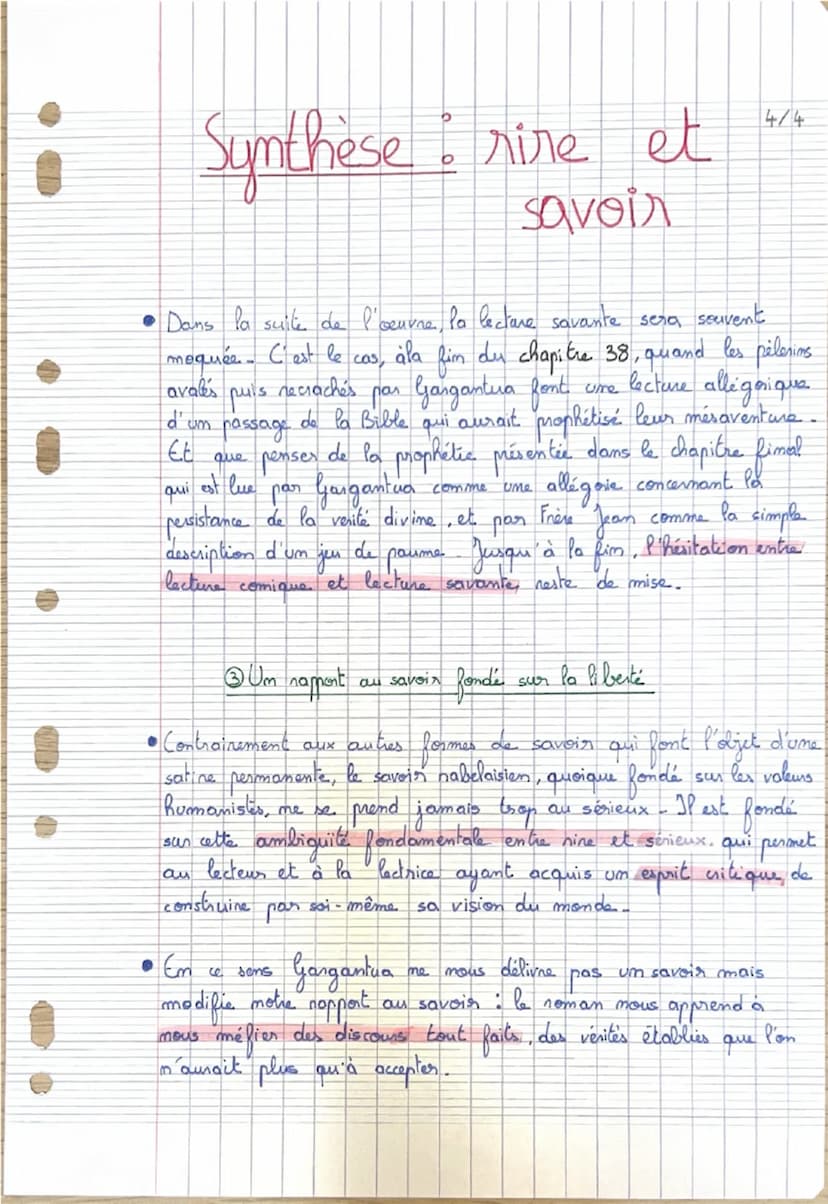 4/4
Synthèse : rire et
savoir
• Dans la suite de l'œuvre, la lecture savante sera souvent
moquée. C'est le cas, à la fin du chapitre 38, quand les pèlerins
avalés puis recrachés par Gargantua font une lecture allégorique
d'un passage de la Bible qui aurait prophétisé leur mésaventure.
Et que penser de la prophétie présentée dans le chapitre final
qui est lue par Gargantua comme une allégorie concernant la
persistance de la vérité divine, et par Frère Jean comme la simple
description d'un jeu de paume. Jusqu'à la fin, l'hésitation entre
lecture comique et lecture savante, reste de mise.
③ Un rapport au savoir fondé sur la liberté
• Contrairement aux autres formes de savoir qui font l'objet d'une
satire permanente, le savoir rabelaisien, quoique fondé sur les valeurs
humanistes, ne se prend jamais trop au sérieux. Il est fondé
sur cette ambiguïté fondamentale entre rire et sérieux, qui permet
au lecteur et à la lectrice ayant acquis un esprit critique, de
construire par soi-même sa vision du monde.
• En ce sens Gargantua ne nous délivre pas un savoir mais
modifie notre rapport au savoir : le roman nous apprend à
nous méfier des discours tout faits, des vérités établies que l'on
n'aurait plus qu'à accepter.